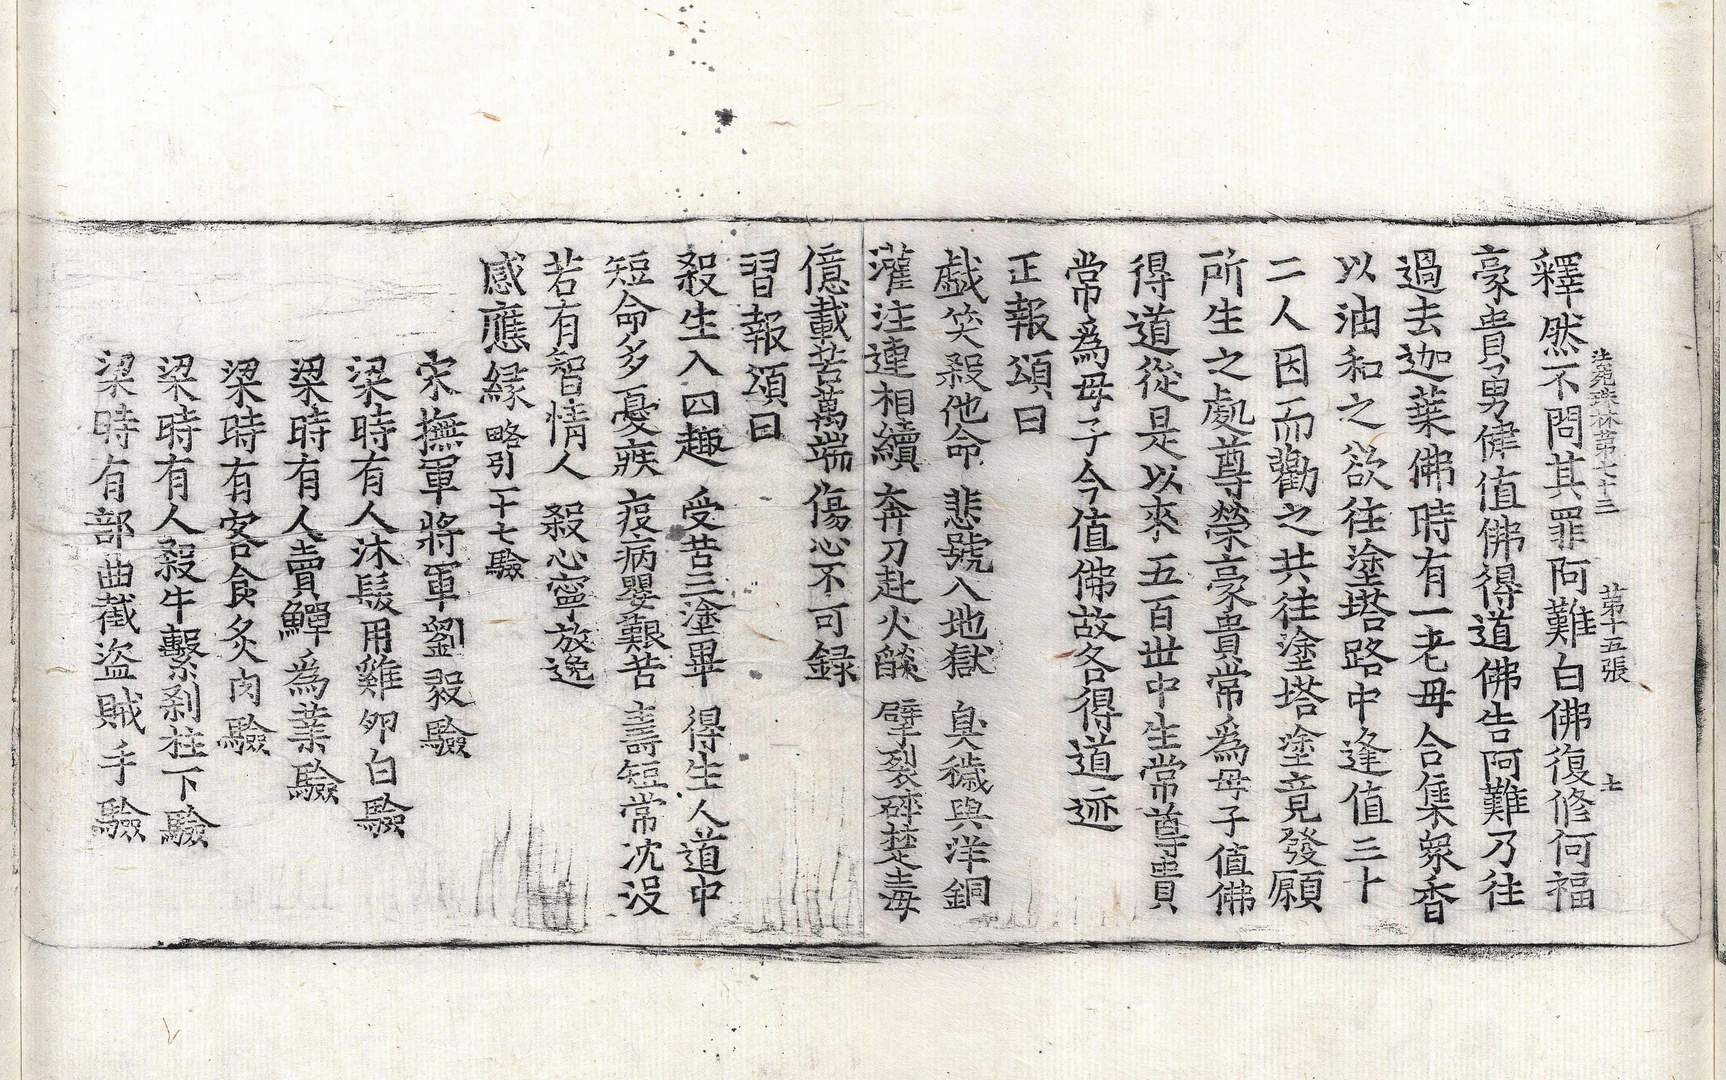 法苑珠林第七十三　第十五張　七
釋然不問其罪阿難白佛復修何福
豪貴勇健值佛得道佛告阿難乃往
過去迦葉佛時有一老母合集衆香
以油和之欲往塗塔路中逢值三十
二人因而勸之共往塗塔塗竟發願
所生之處尊榮豪貴常爲母子值佛
得道從是以來五百世中生常尊貴
常爲母子今值佛故各得道迹
正報頌曰
戲笑殺他命　悲號入地獄　臭穢與洋銅
灌注連相續　奔刀赴火㷿　擘裂碎楚毒
億載苦萬端　傷心不可録
習報頌曰
殺生入四趣　受苦三塗畢　得生人道中
短命多憂疾　疫病嬰艱苦　壽短常沈没
若有智情人　殺心寧放逸
感應緣略引一十七驗
宋撫軍將軍劉毅驗
梁時有人沐髮用雞卵白驗
梁時有人賣鱓爲業驗
梁時有客食炙肉驗
梁時有人殺牛繫刹柱下驗
梁時有部曲截盜賊手驗